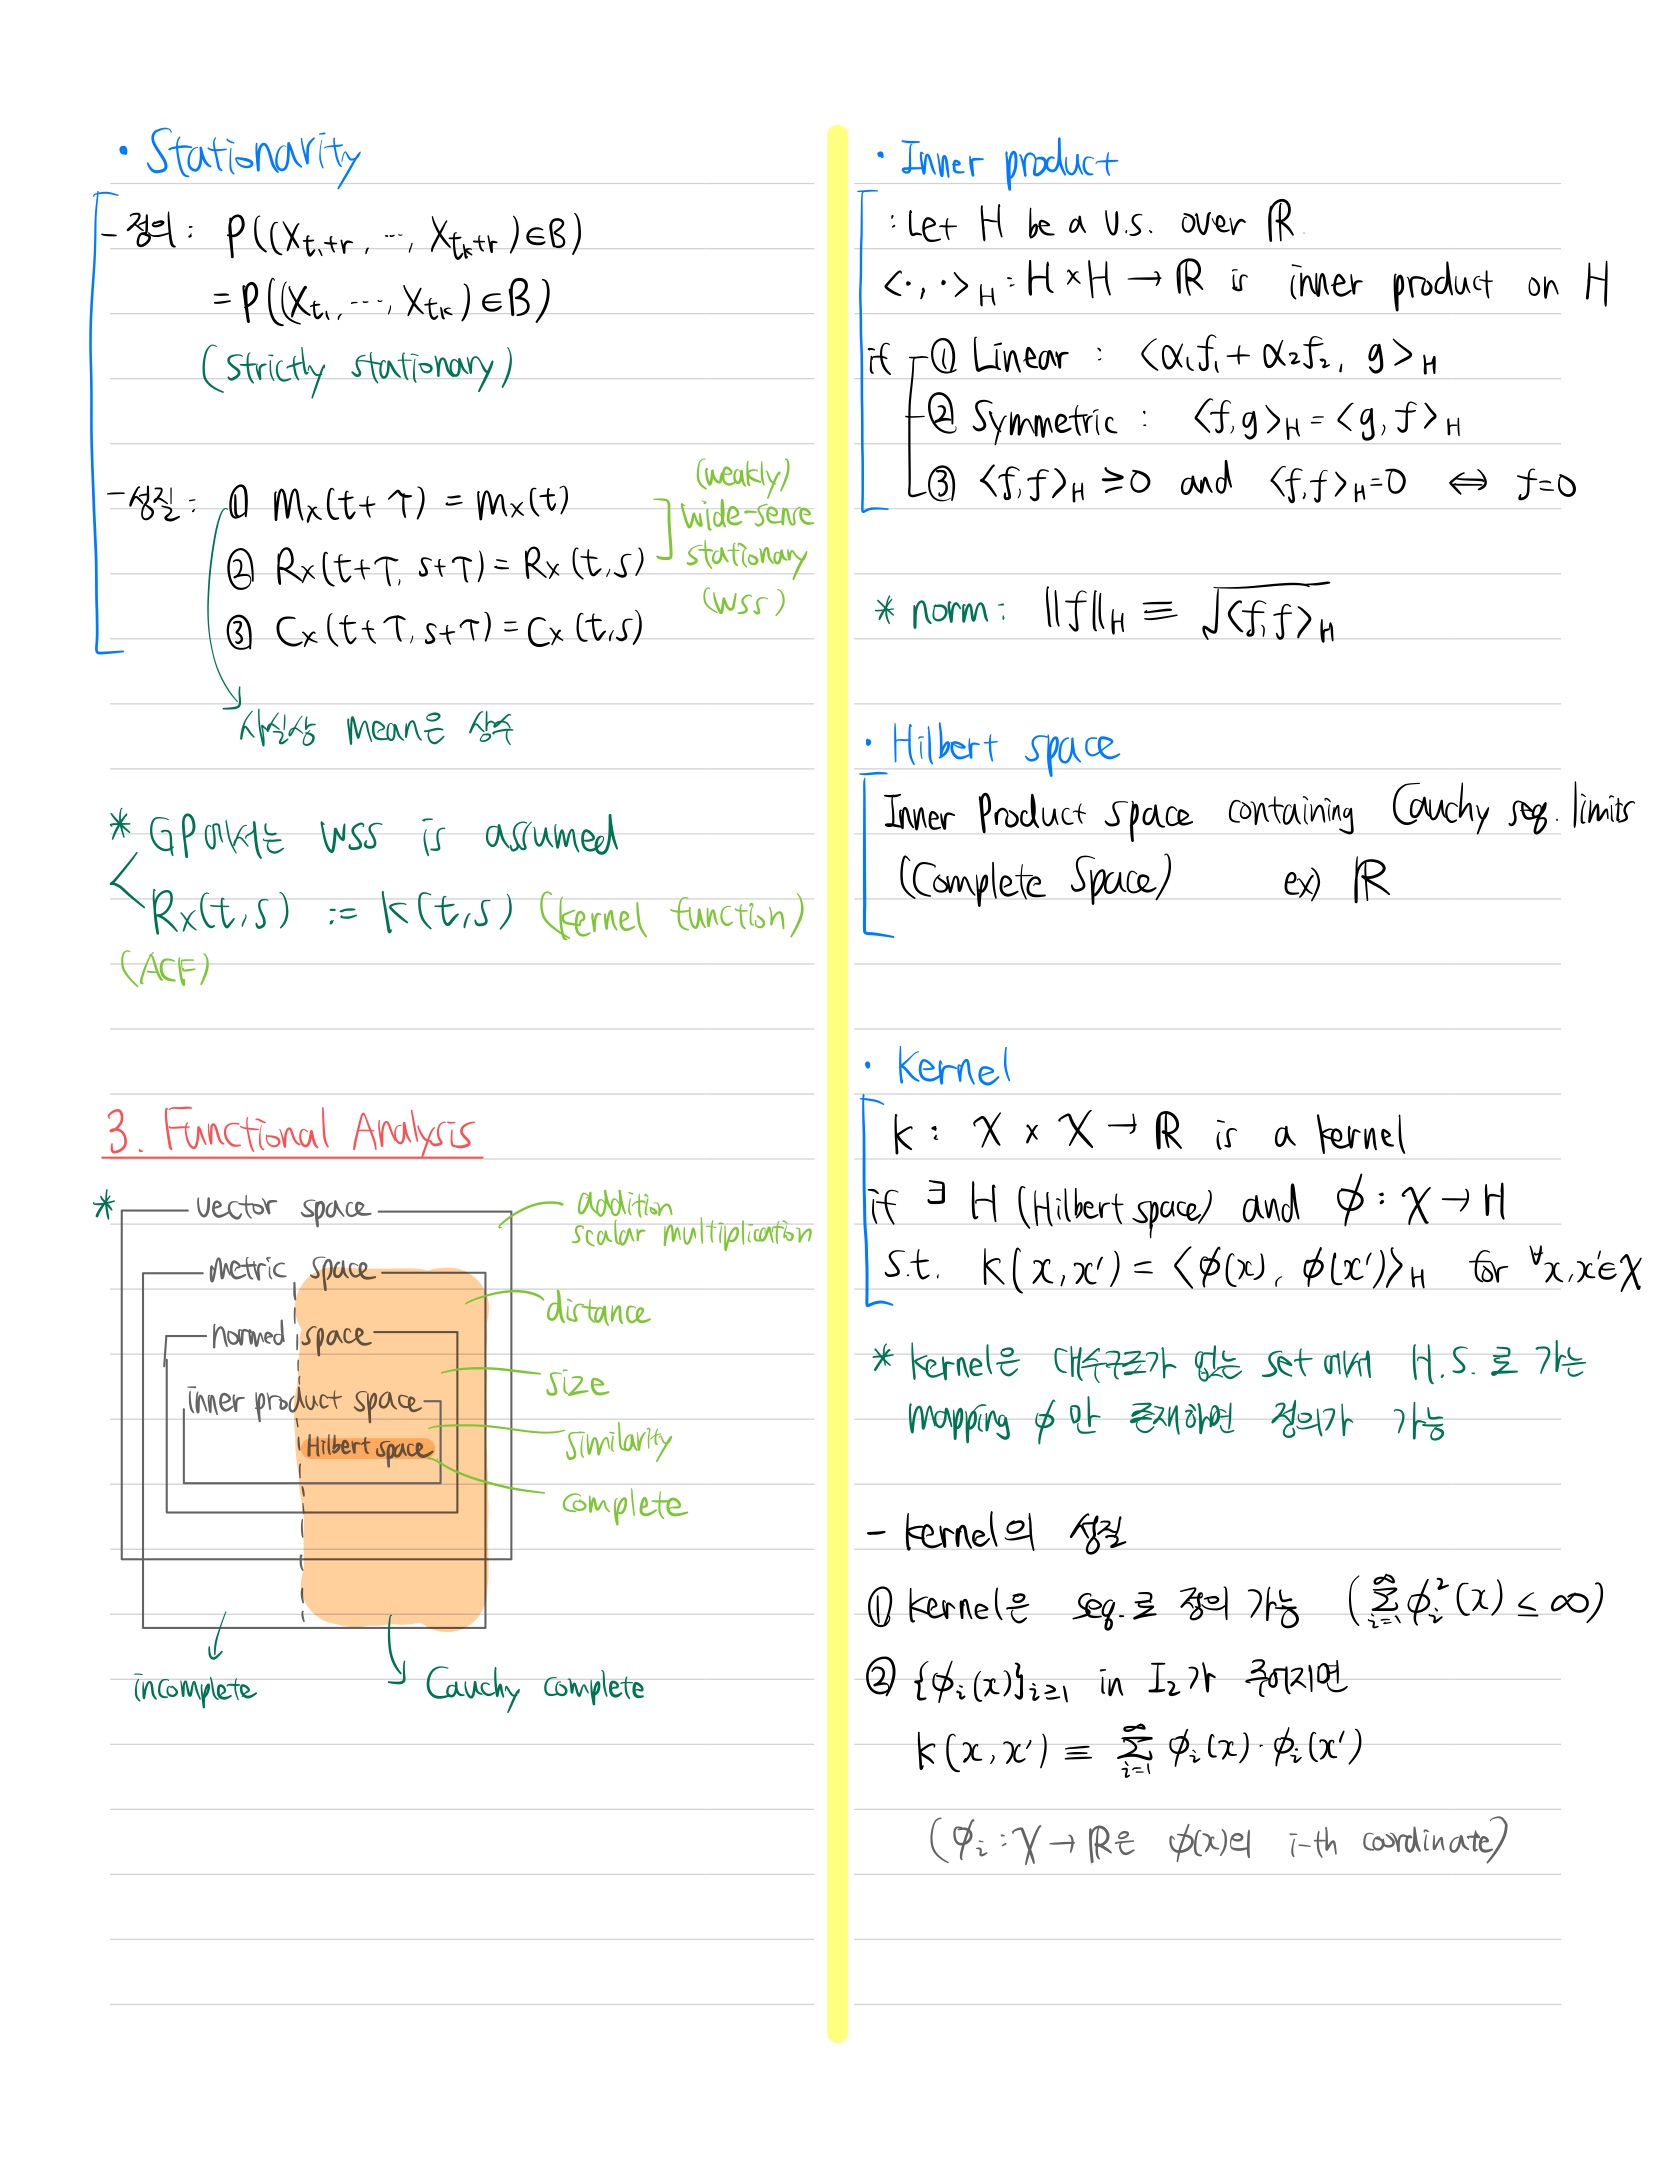 · Stationarity
- 정의 : P((X_{t₁+r}, ..., X_{t_k+r}) ∈ B)
= P((X_{t₁}, ..., X_{t_k}) ∈ B)
(strictly stationary)
- 성질 : ① m_X(t+τ) = m_X(t)
② R_X(t+τ, s+τ) = R_X(t,s)
③ C_X(t+τ, s+τ) = C_X(t,s)
(weakly)
wide-sense
stationary
(WSS)
사실상 mean은 상수
* GP에서는 WSS is assumed
R_X(t,s) := k(t,s) (kernel function)
(ACF)
3. Functional Analysis
* vector space
addition
scalar multiplication
metric space
distance
normed space
size
inner product space
similarity
Hilbert space
complete
incomplete
Cauchy complete
· Inner product
: Let H be a v.s. over ℝ.
<·,·>_H : H × H → ℝ is inner product on H
if ① Linear : <α₁f₁ + α₂f₂, g>_H
② Symmetric : <f,g>_H = <g,f>_H
③ <f,f>_H ≥ 0 and <f,f>_H = 0 ⇔ f=0
* norm : ||f||_H ≡ √<f,f>_H
· Hilbert space
Inner Product space containing Cauchy seq. limits
(Complete Space) ex) ℝ
· Kernel
k : χ × χ → ℝ is a kernel
if ∃ H (Hilbert space) and φ : χ → H
s.t. k(x,x') = <φ(x), φ(x')>_H for ∀x,x'∈χ
* kernel은 대수구조가 없는 set에서 H.S.로 가는
mapping φ만 존재하면 정의가 가능
- kernel의 성질
① kernel은 seq.로 정의 가능 (∑_{i=1}^∞ φ_i²(x) ≤ ∞)
② {φ_i(x)}_{i≥1} in I₂가 주어지면
k(x,x') ≡ ∑_{i=1}^∞ φ_i(x)·φ_i(x')
(φ_i : χ → ℝ은 φ(x)의 i-th coordinate)